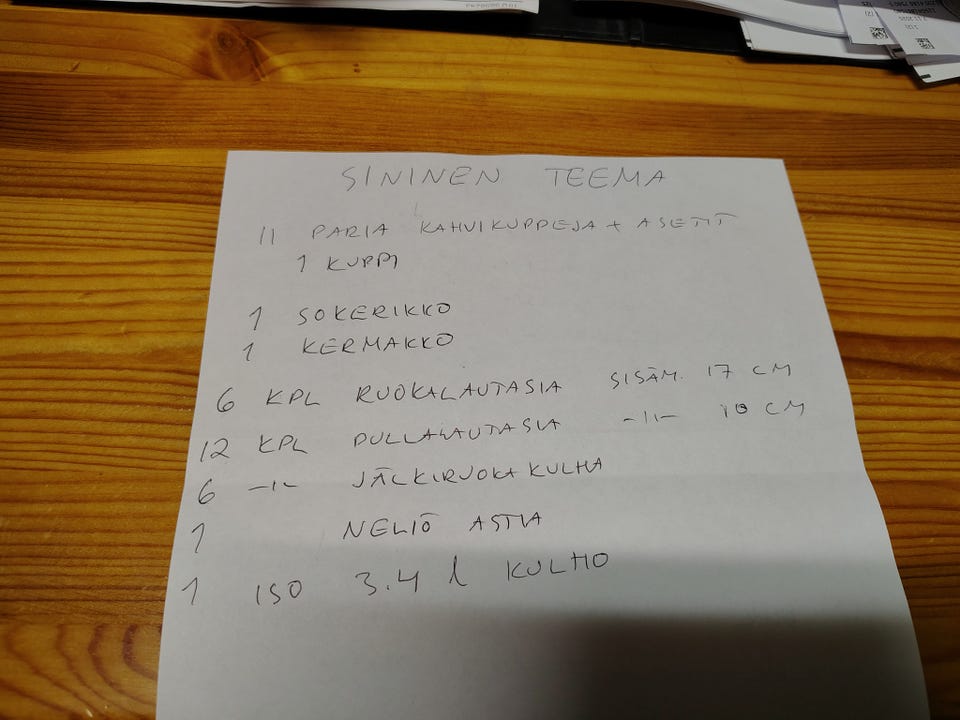 SININEN TEEMA
11 PARIA KAHVIKUPPEJA + ASETIT
1 KUPPI
1 SOKERIKKO
1 KERMAKKO
6 KPL RUOKALAUTASIA SISÄM. 17 CM
12 KPL PULLALAUTASIA -11- 10 CM
6 -11- JÄLKIRUOKAKULHA
1 NELIÖ ASTIA
1 ISO 3.4 l KULHO